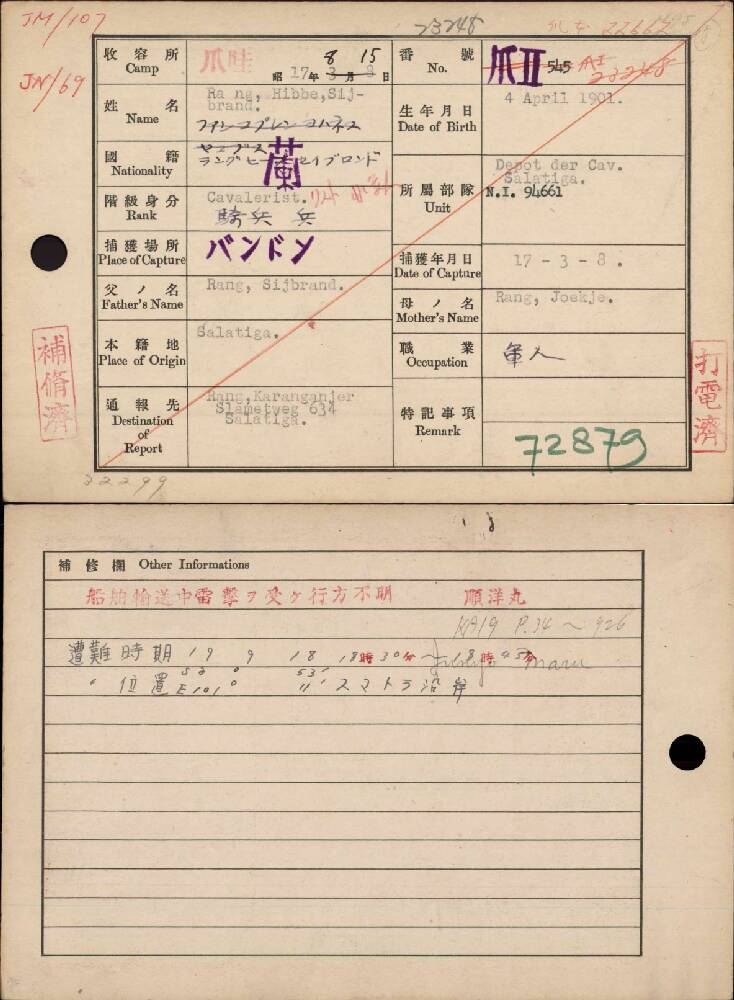 JM/107
23248
22662
JN/69
收容所 Camp
爪哇
8 15
昭 17 年 3 月 8 日
番號 No.
爪II 545
23248
姓名 Name
Ra ng, Hibbe,Sij-
brand.
ラング ヒーベ セイブロンド
生年月日 Date of Birth
4 April 1901.
國籍 Nationality
蘭
階級身分 Rank
Cavalerist.
騎兵 兵
所屬部隊 Unit
Depot der Cav.
Salatiga.
N.I. 94661
捕獲場所 Place of Capture
バンドン
捕獲年月日 Date of Capture
17 - 3 - 8 .
父ノ名 Father's Name
Rang, Sijbrand.
母ノ名 Mother's Name
Rang, Joekje.
本籍地 Place of Origin
Salatiga.
職業 Occupation
軍人
通報先 Destination of Report
Rang,Karanganjer
Slametweg 634
Salatiga.
特記事項 Remark
72879
補脩濟
打電濟
32299
補修欄 Other Informations
船舶輸送中雷擊ヲ受ケ行方不明 順洋丸
KA19 P.34 ~ 926
遭難時期 19 9 18 18時30分~18時45分
Junyo Maru
〃 位置 S 2° 53′
E 101° 11′ スマトラ沿岸